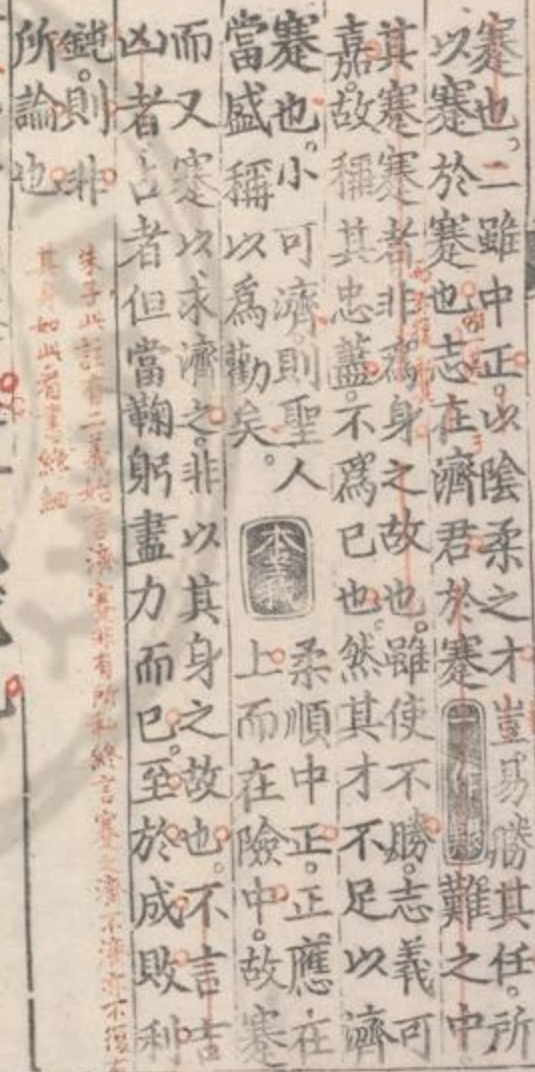 蹇也。二雖中正。以陰柔之才豈易勝其任。所
以蹇於蹇也志在濟君於蹇難之中
其蹇蹇者非爲身之故也。雖使不勝。志義可
嘉。故稱其忠藎。不爲已也。然其才不足以濟
蹇也。小可濟。則聖人
當盛稱以爲勸矣。
本義
柔順中正。正應在
上而在險中。故蹇
而又蹇以求濟之。非以其身之故也。不言吉
凶者占者但當鞠躬盡力而已。至於成敗利
鈍。則非
所論也
朱子此註有二義始言濟蹇非有所私終言蹇之濟不濟亦不復有
其身如此看書纔細